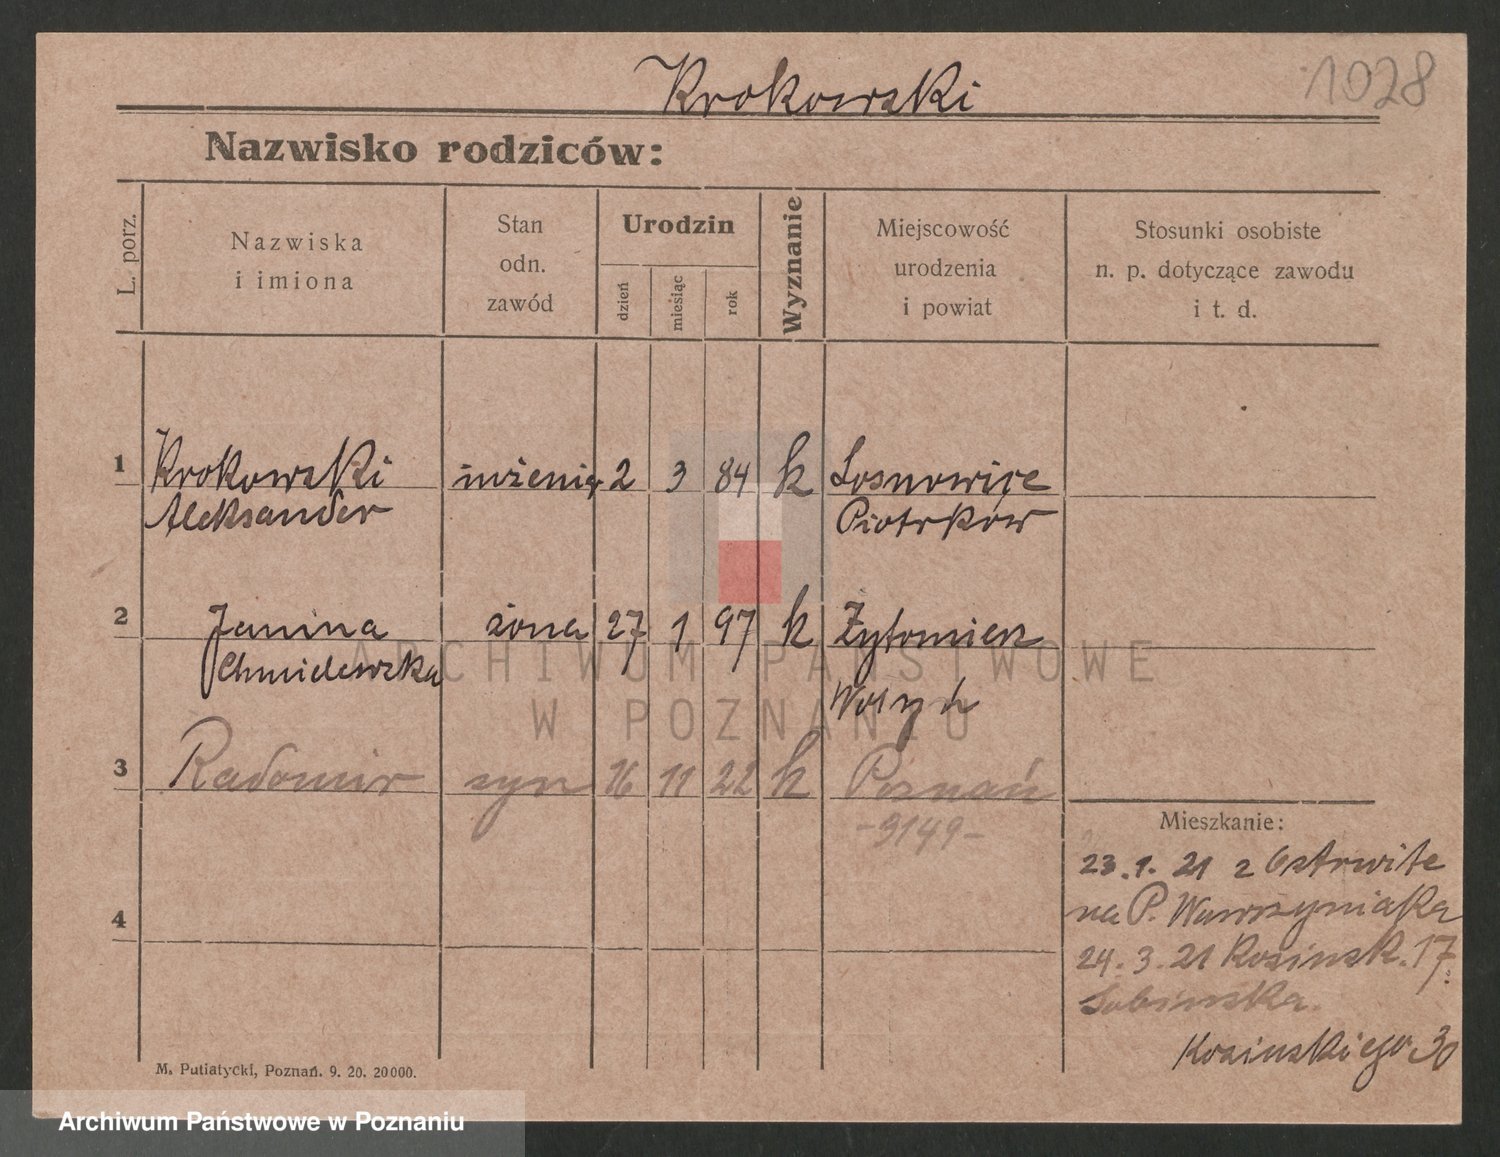 Krokowski
1028
Nazwisko rodziców:
L. porz.
Nazwiska
i imiona
Stan
odn.
zawód
Urodzin
dzień
miesiąc
rok
Wyznanie
Miejscowość
urodzenia
i powiat
Stosunki osobiste
n. p. dotyczące zawodu
i t. d.
1 Krokowski inżenier 2 3 84 k Sosnowice
Aleksander Piotrków
2 Janina żona 27 1 97 k Żytomierz
Chmielewska Wołyń
3 Radomir syn 16 11 22 k Poznań
-3149-
4
Mieszkanie:
23.1.21 z Ostrwite
na P. Wawrzyniaka
24.3.21 Kosinsk. 17
Kosinskiego 30
M. Putiatycki, Poznań. 9. 20. 20000.
ARCHIWUM PAŃSTWOWE
W POZNANIU
Archiwum Państwowe w Poznaniu